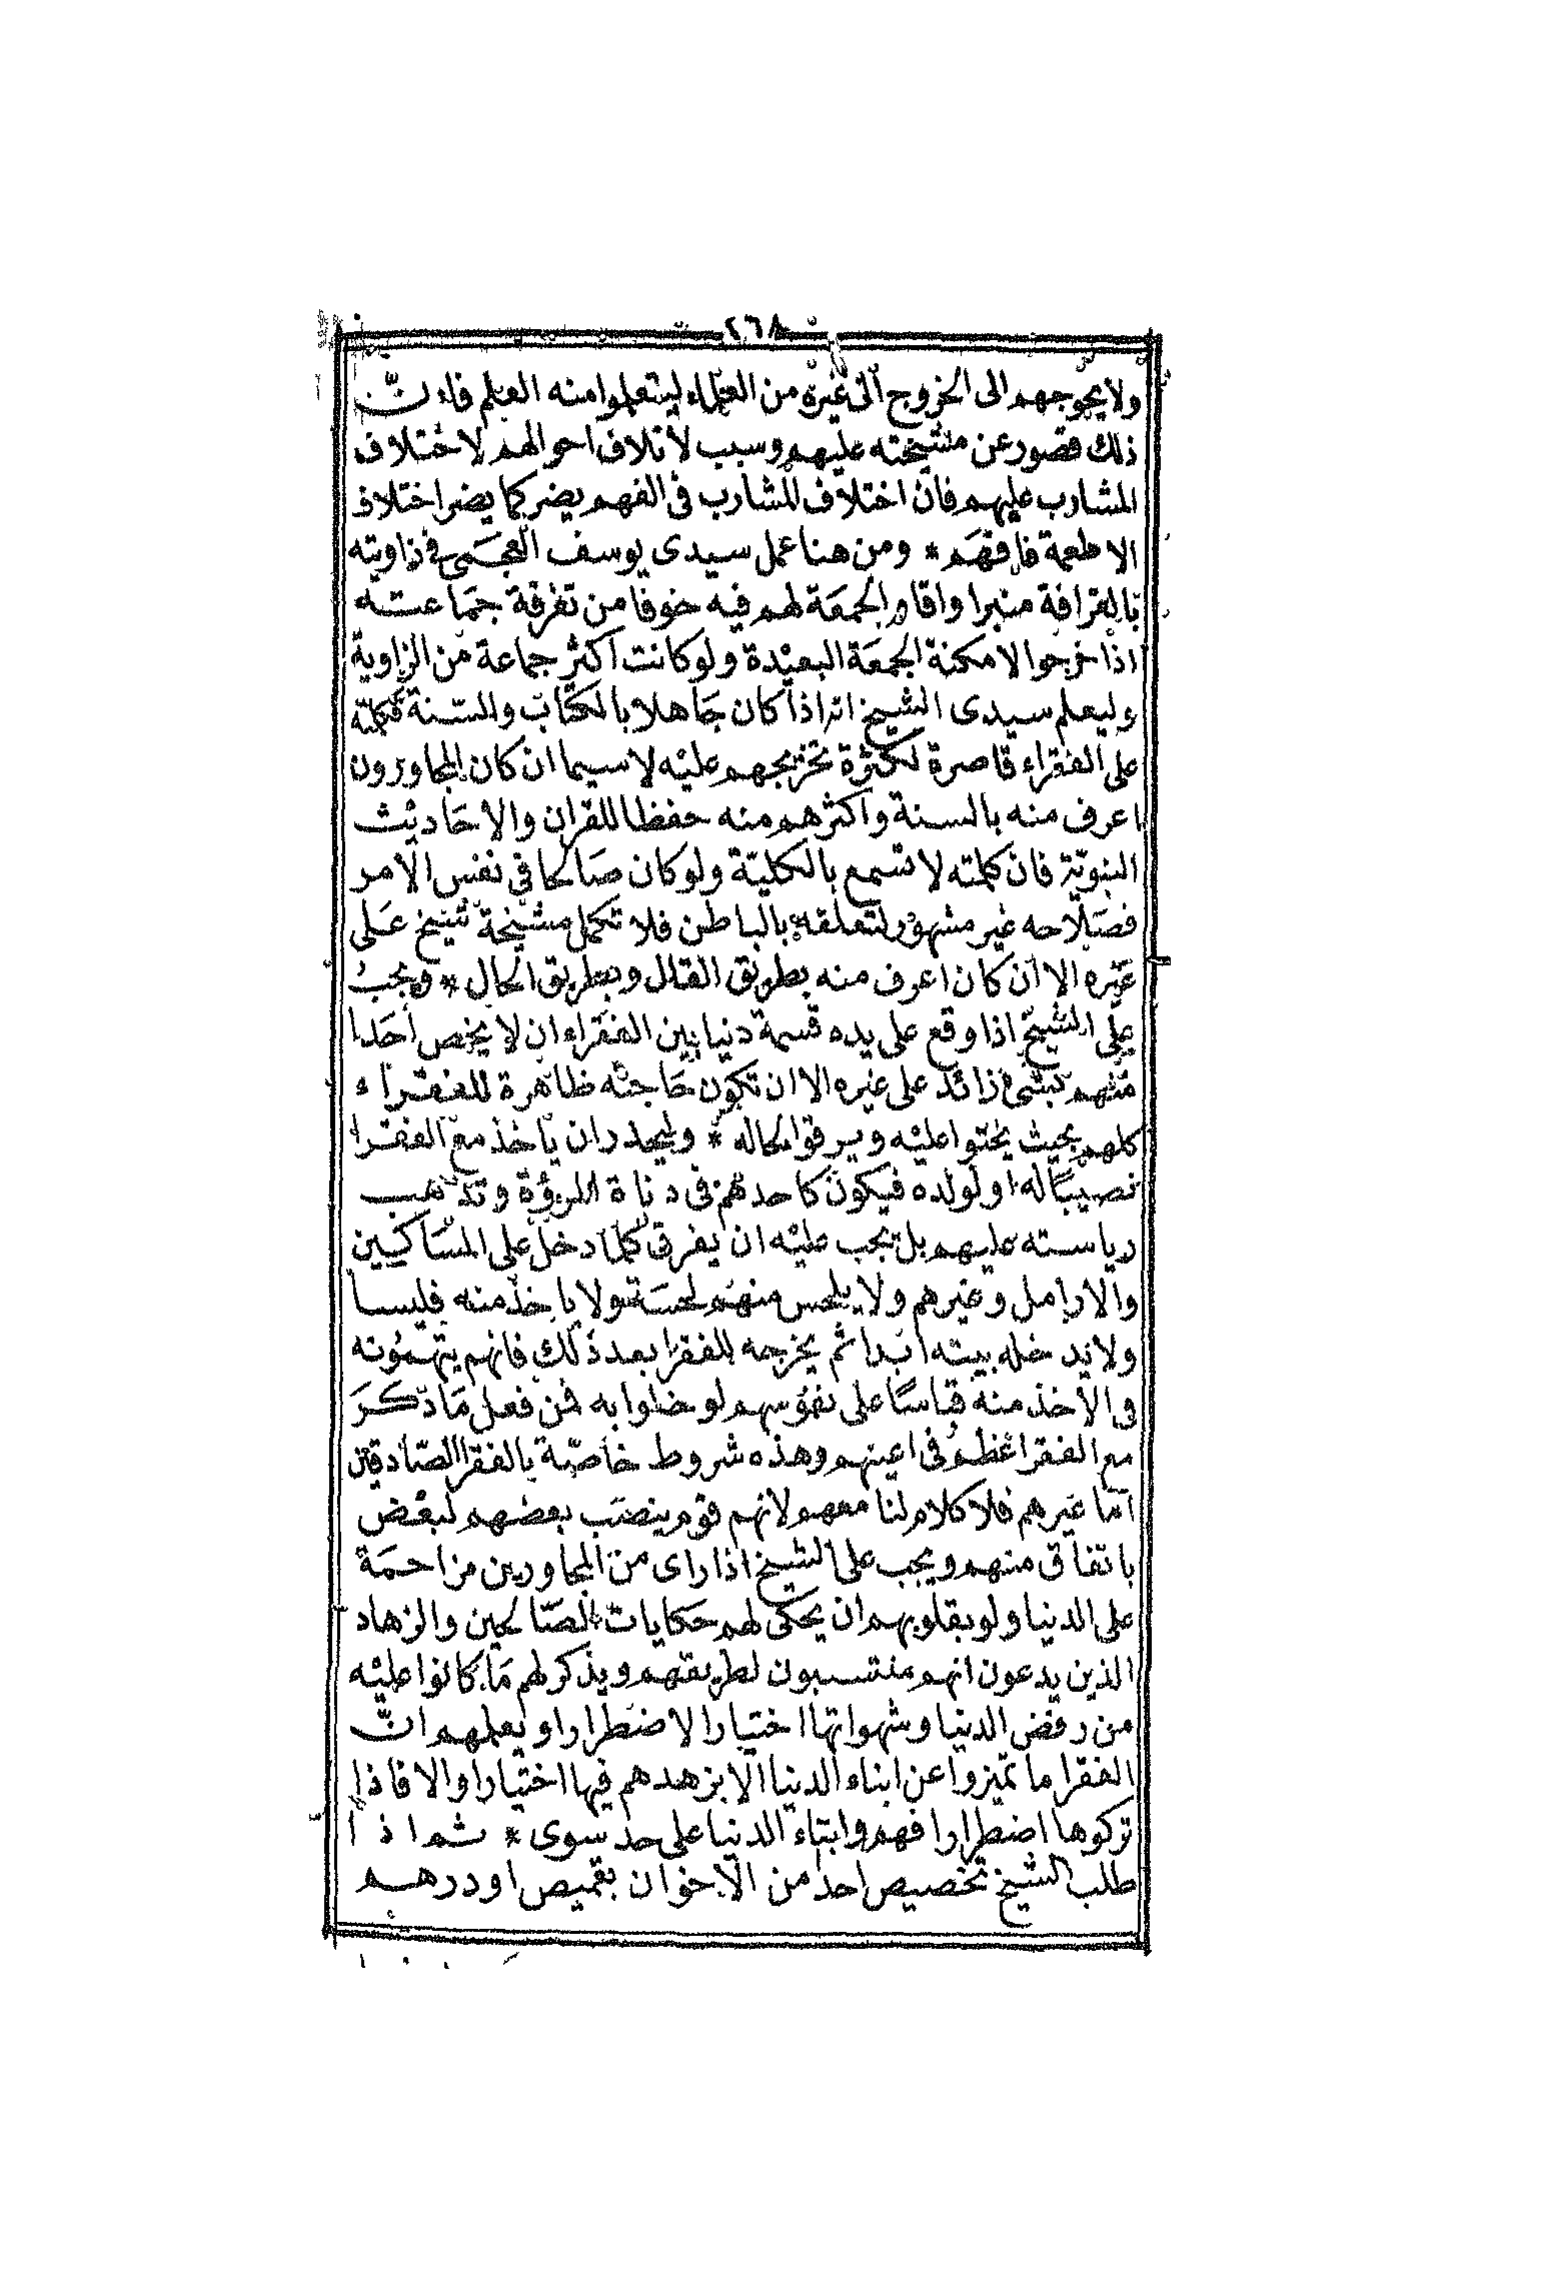 ٢٦٨
ولا يحوجهم الى الخروج الى غيره من العلماء ليتعلموا منه العلم فاءنّ
ذلك قصور عن مشيخته عليهم وسبب لاتلاف احوالهم لاختلاف
المشارب عليهم فان اختلاف المشارب فى الفهم يضر كما يضر اختلاف
الاطعمة فافهَم * ومن هنا عمل سيدى يوسف العجمَى فى زاويته
بالقرافة منبرا واقام الجمعَة لهم فيه خوفا من تفرقة جمَاعته
اذا خرجوا لامكنة الجمعَة البعيْدة ولو كانت اكثر جماعة من الزاوية
وليعلم سيدى الشيخ انه اذا كان جَاهلا بالكتاب والسّنة فكلمته
على الفقراء قاصرة لكثرة تخريجهم عليْه لا سيما ان كان المجاورون
اعرف منه بالسنة واكثرهم منه حفظا للقران والاحَاديْث
النبويّة فان كلمته لا تسمع بالكليّة ولو كان صَالحا فى نفس الامر
فصَلاحه غير مشهوْر لتعلقه بالباطن فلا تكمل مشيْخة شيخ عَلى
غيْره الا ان كان اعرف منه بطريق القال وبطريق الحال * ويجبُ
على الشيخ اذا وقع على يده قسمة دنيا بين الفقراء ان لا يخص احَدا
منهم بشىء زائد على غيره الا ان تكون حَاجته ظاهرة للفقراء
كلهم بحيث يحنوا عليْه ويرقوا لحاله * وليحذر ان ياخذ مع الفقرا
نصيبًا له او لولده فيكون كاحدهم فى دناة المروْة وتذهب
رياسته عليهم بل يجب عليْه ان يفرق كلما دخل على المسَاكين
والارامل وغيرهم ولا يلحس منهم لحسَة ولا ياخذ منه فليسا
ولا يدخله بيته ابدا ثم يخرجه للفقرا بعد ذلك فانهم يتهموْنه
فى الاخذ منه قياسًا على نفوسهم لو خلوا به فمن فعل مَا ذكَرَ
مع الفقرا عظمُ فى اعينهم وهذه شروط خاصّة بالفقرا الصّادقين
امّا غيرهم فلا كلام لنا معهم لانهم قوم ينصَب بعضهم لبعْض
باتفاق منهم ويجب على الشيخ اذا راى من المجاورين مزاحمَة
على الدنيا ولو بقلوبهم ان يحكى لهم حكايات الصّالحين والزهاد
الذين يدعون انهم منتسبون لطريقهم ويذكر لهم مَا كانوا عليْه
من رفض الدنيا وشهواتها اختيارا لا اضطرارا ويعلمهم انّ
الفقرا ما تميزوا عن ابناء الدنيا الا بزهدهم فيها اختيارا والا فاذا
تركوها اضطرارا فهم وابناء الدنيا على حد سوى * ثم اذا
طلب الشيخ تخصيص احد من الاخوان بقميص او درهم